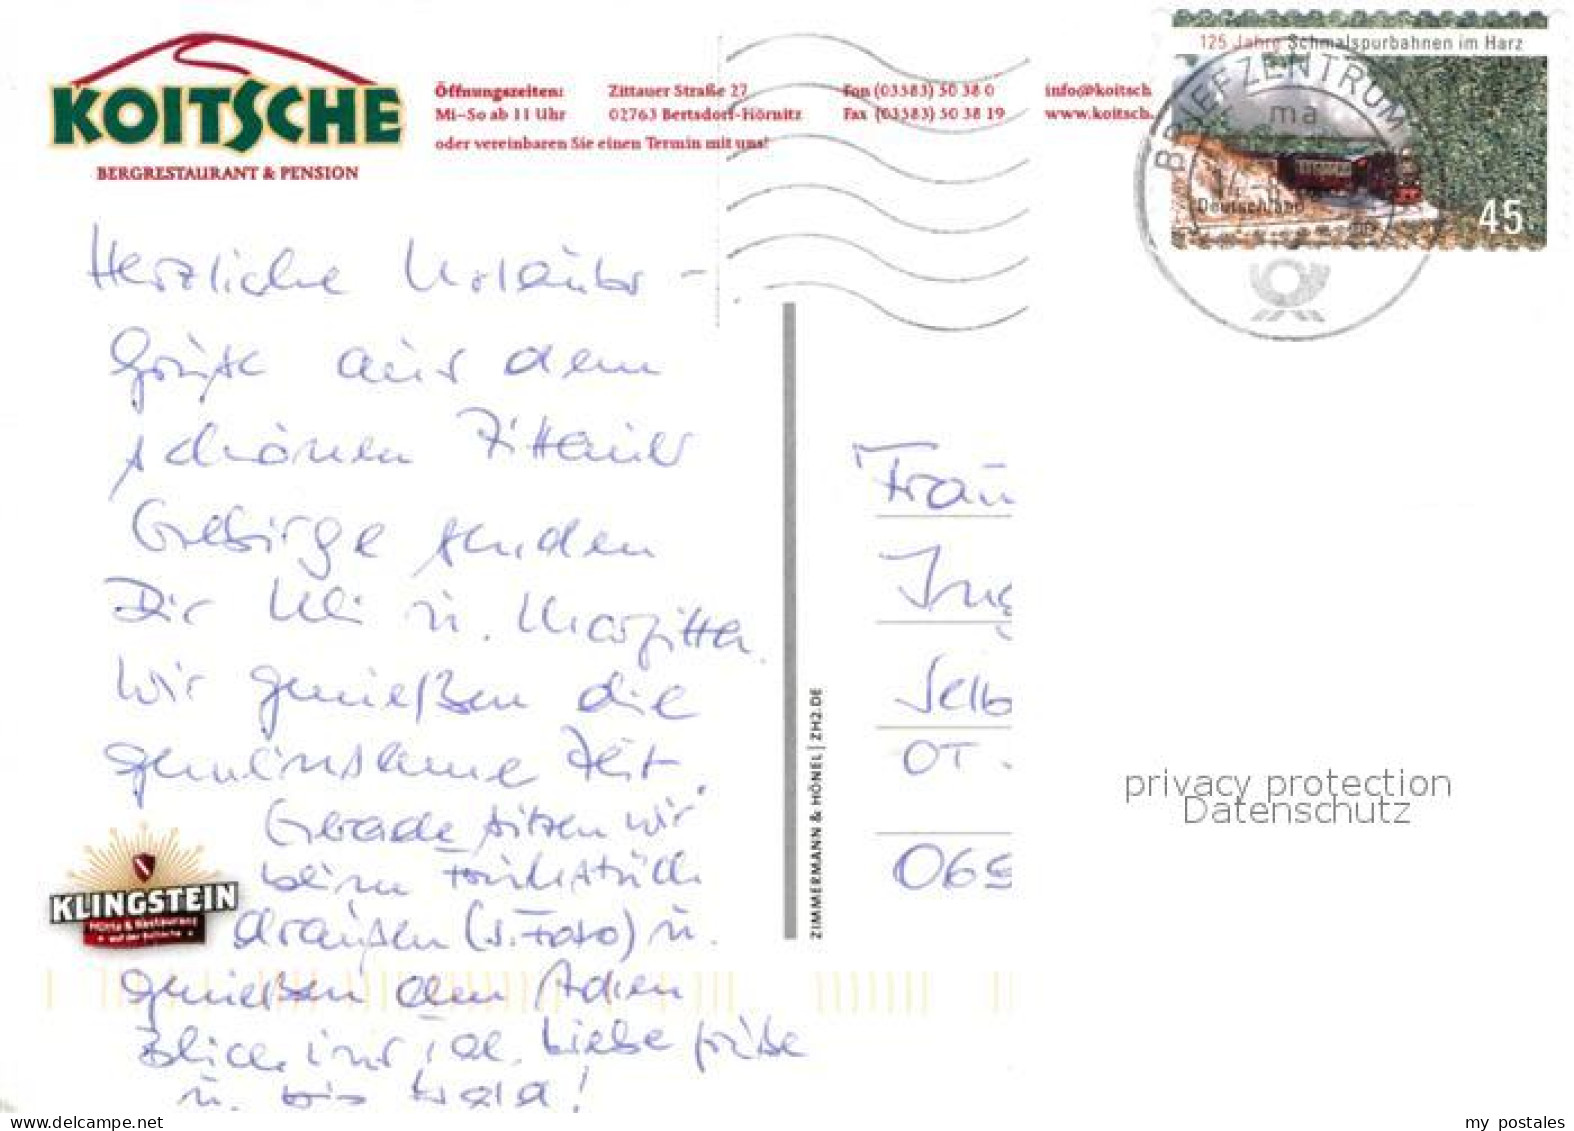 KOITSCHE
BERGRESTAURANT & PENSION
Öffnungszeiten:
Mi–So ab 11 Uhr
oder vereinbaren Sie einen Termin mit uns!
Zittauer Straße 27
02763 Bertsdorf-Hörnitz
Fon (03583) 50 38 0
Fax (03583) 50 38 19
info@koitsch
www.koitsch.
125 Jahre Schmalspurbahnen im Harz
Deutschland
45
BRIEFZENTRUM
ma
Herzliche Urlaubs-
grüße aus dem
schönen Zittauer
Gebirge senden
Dir Uli u. Margitta.
Wir genießen die
gemeinsame Zeit.
Gerade sitzen wir
beim Frühstück
draußen (s. Foto) u.
genießen den schönen
Blick ins Tal. Liebe Grüße
u. bis bald!
KLINGSTEIN
ZIMMERMANN & HÖNEL | ZH2.DE
Frau
Ing
Selb
OT
069
privacy protection
Datenschutz
www.delcampe.net
my postales